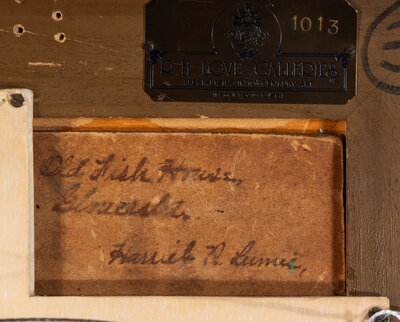 1013
R.H. LOVE GALLERIES
Old Fish House,
Gloucester.
Harriet R. Lumis,